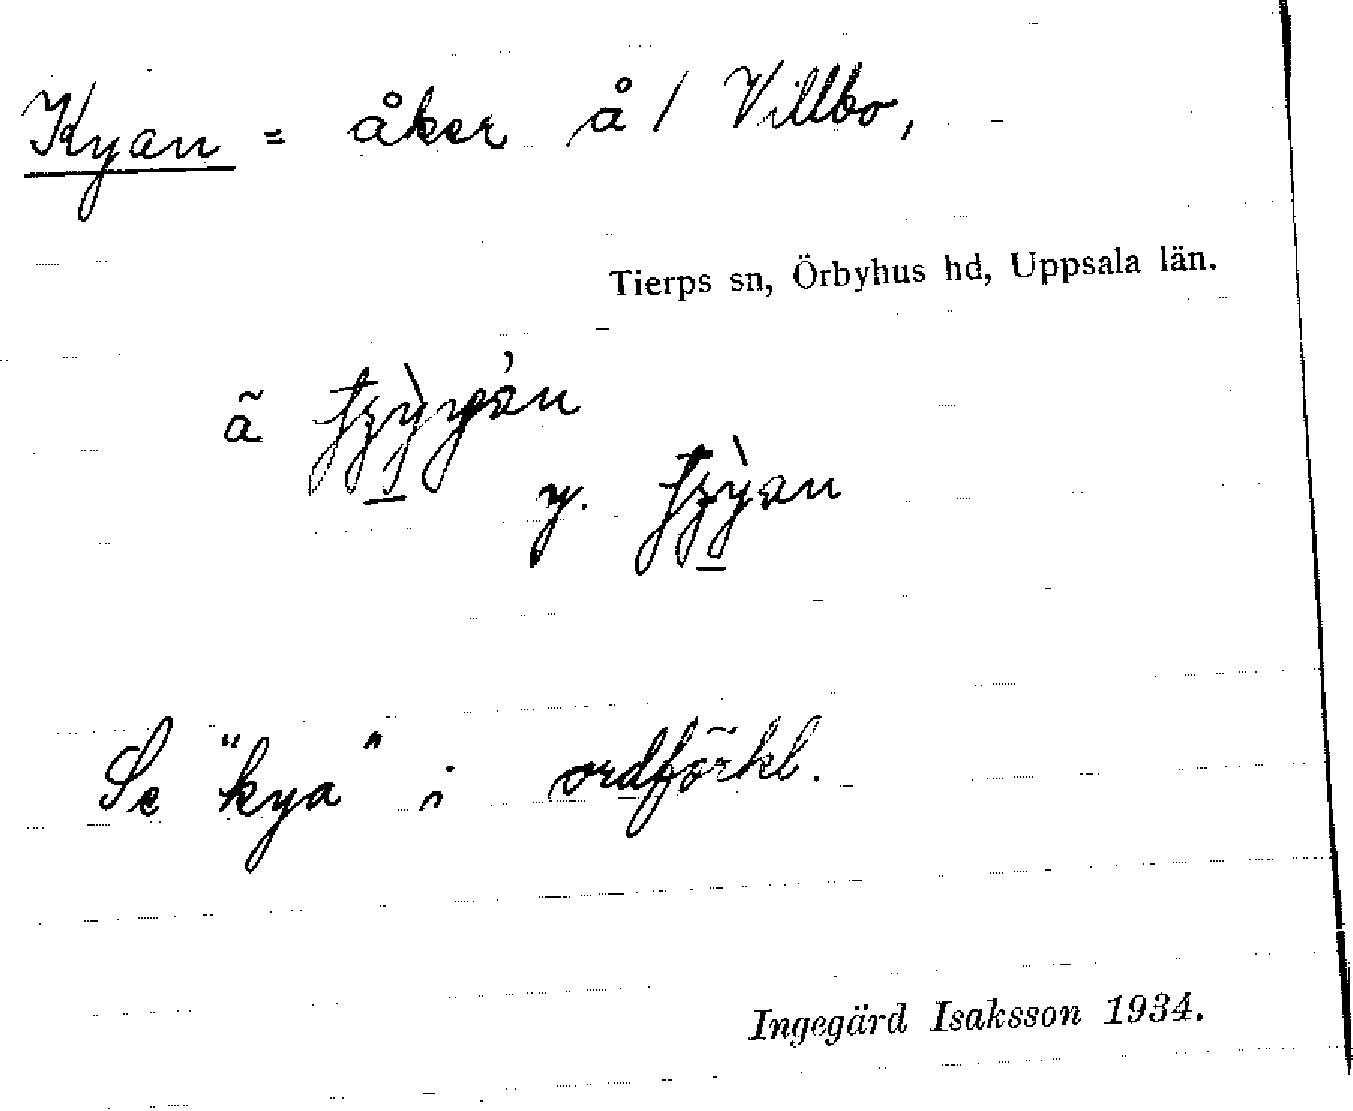 Kyan = åker å / Villbo,
Tierps sn, Örbyhus hd, Uppsala län.
ã
y.
Se "kya" i ordförkl.
Ingegärd Isaksson 1934.